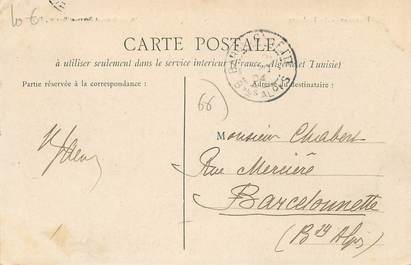 10 €
CARTE POSTALE
à utiliser seulement dans le service intérieur (France, Algérie et Tunisie)
Partie réservée à la correspondance :
Adresse du destinataire :
BSES ALPES
66
Monsieur Chabert
Rue Mercière
Barcelonnette
(Bses Alpes)